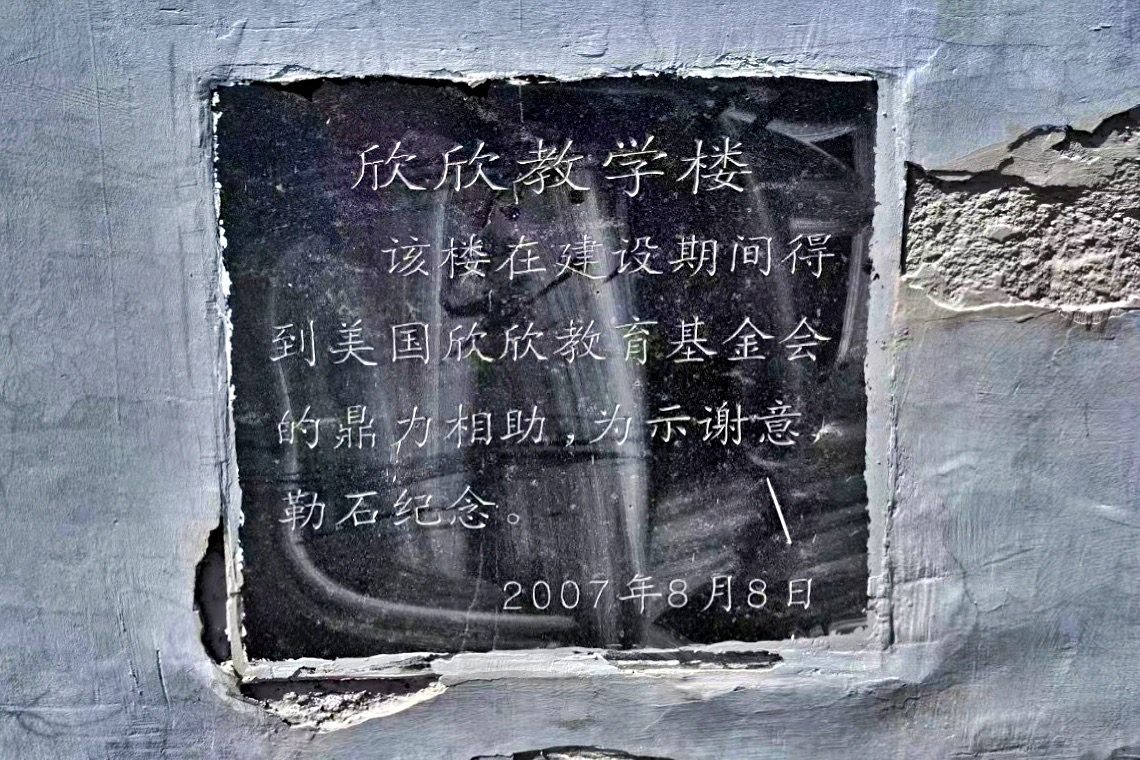 欣欣教学楼
该楼在建设期间得
到美国欣欣教育基金会
的鼎力相助,为示谢意,
勒石纪念。
2007年8月8日